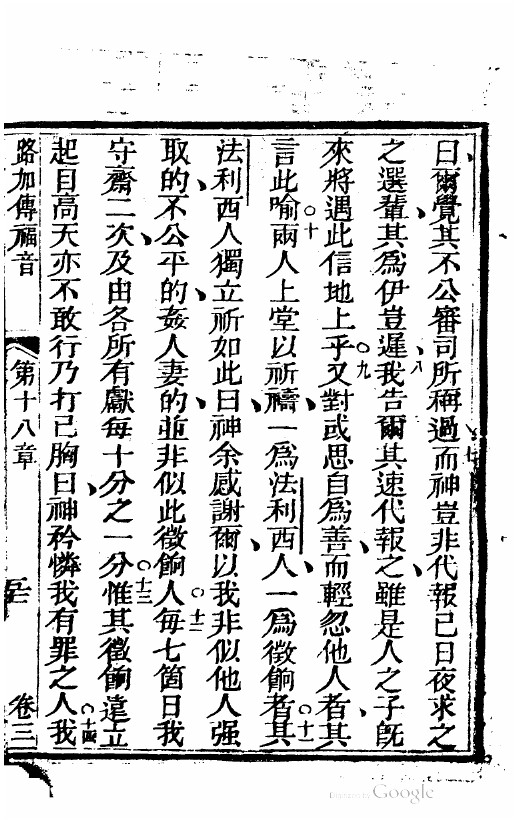 曰爾覺其不公審司所稱過七而神豈非代報己日夜求之
之選輩其爲伊豈遲八我告爾其速代報之雖是人之子旣
來將遇此信地上乎九又對或思自爲善而輕忽他人者其
言此喻○十兩人上堂以祈禱一爲法利西人一爲徵餉者○十一其
法利西人獨立祈如此曰神余感謝爾以我非似他人强
取的不公平的姦人妻的並非似此徵餉人○十二每七箇日我
守齋二次及由各所有獻每十分之一分○十三惟其徵餉遠立
起目高天亦不敢行乃打己胸曰神矜憐我有罪之人○十四我
路加傳福音 第十八章 卷三
Google